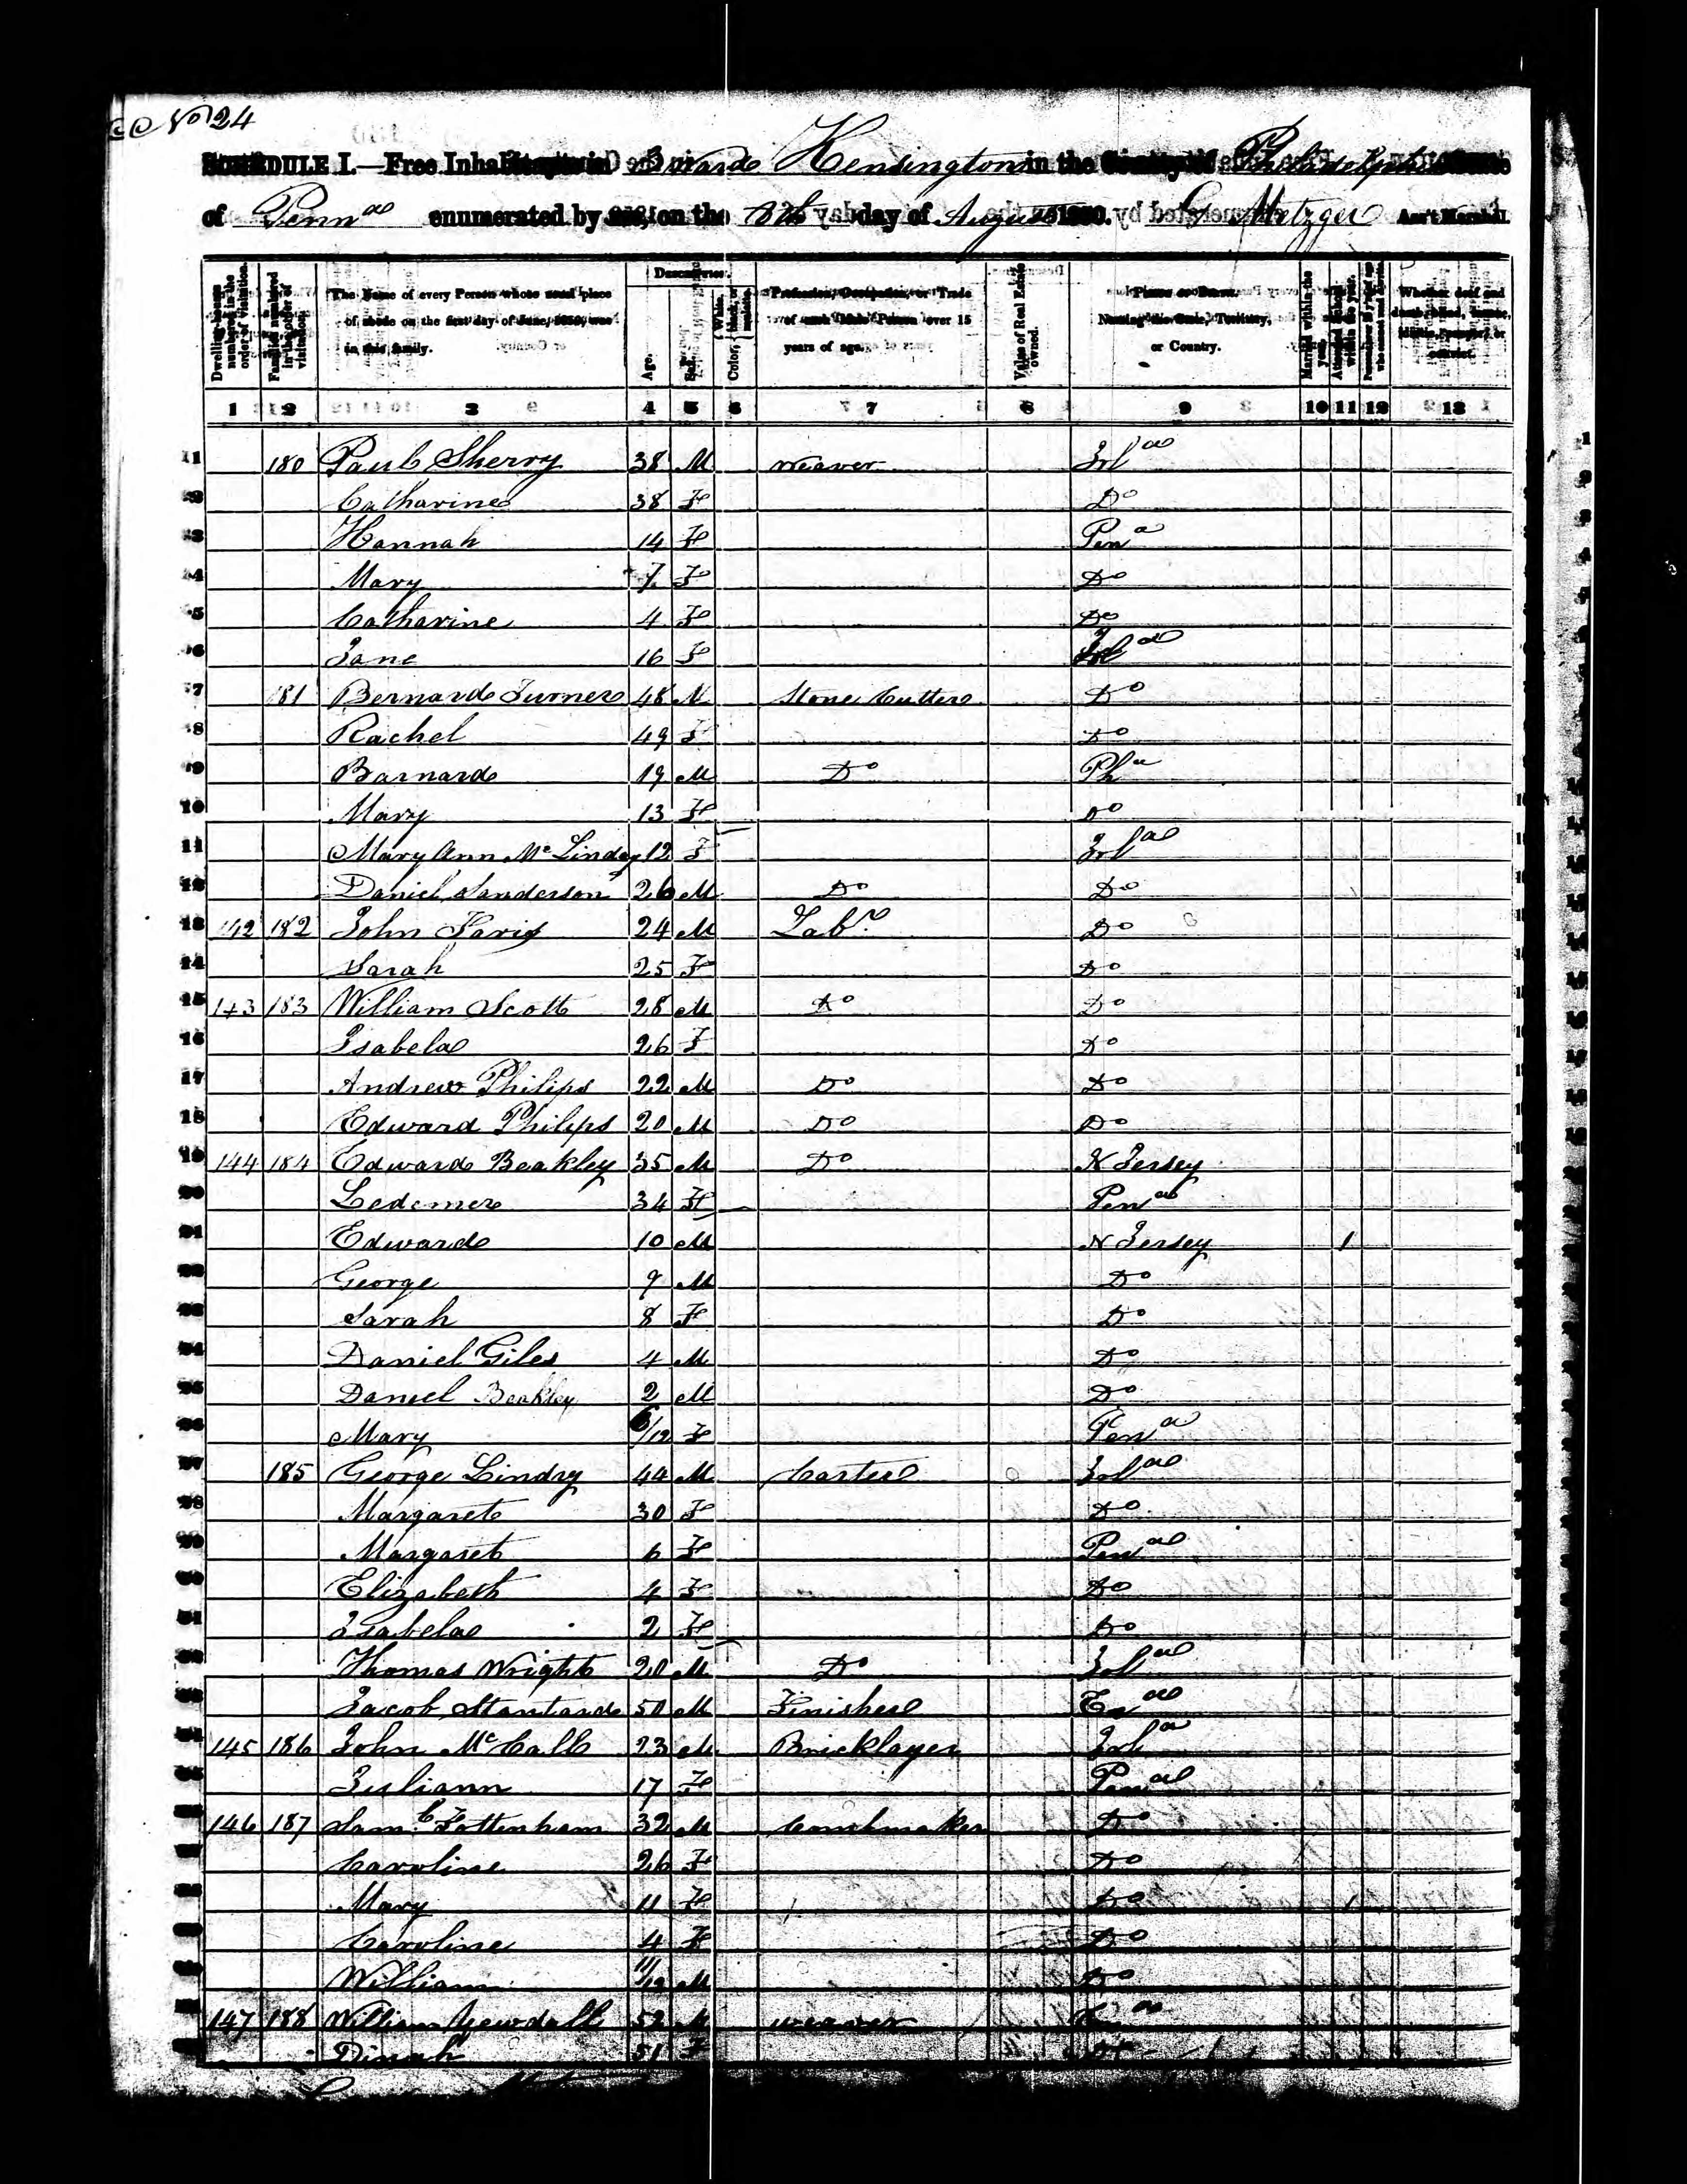 No 24
SCHEDULE I.—Free Inhabitants in 3 Ward Kensington in the County of Philadelphia State
of Penna enumerated by me, on the 8th day of August 1850. G Metzger Ass't Marshal.
Dwelling-houses numbered in the order of visitation.
Families numbered in the order of visitation.
The Name of every Person whose usual place of abode on the first day of June, 1850, was in this family.
Description.
Age.
Sex.
Color, White, black, or mulatto.
Profession, Occupation, or Trade of each Male Person over 15 years of age.
Value of Real Estate owned.
Place of Birth. Naming the State, Territory, or Country.
Married within the year.
Attended School within the year.
Persons over 20 y'rs of age who cannot read and write.
Whether deaf and dumb, blind, insane, idiotic, pauper, or convict.
1 2 3 4 5 6 7 8 9 10 11 12 13
1 180 Paul Sherry 38 M Weaver Irla
2 Catharine 38 F Do
3 Hannah 14 F Pena
4 Mary 7 F Do
5 Catharine 4 F Do
6 Jane 16 F Irla
7 181 Bernard Turner 48 M Stone Cutter Do
8 Rachel 49 F Do
9 Barnard 19 M Do Pha
10 Mary 13 F Do
11 Mary Ann Mc Lindey 12 F Irla
12 Daniel Sanderson 26 M Do Do
13 142 182 John Faris 24 M Labr Do
14 Sarah 25 F Do
15 143 183 William Scott 28 M Do Do
16 Isabela 26 F Do
17 Andrew Philips 22 M Do Do
18 Edward Philips 20 M Do Do
19 144 184 Edward Beakley 35 M Do N Jersey
20 Ledemer 34 F Pena
21 Edward 10 M N Jersey 1
22 George 9 M Do
23 Sarah 8 F Do
24 Daniel Giles 4 M Do
25 Daniel Beakley 2 M Do
26 Mary 6/12 F Pena
27 185 George Lindsy 44 M Carter Irla
28 Margaret 30 F Do
29 Margaret 6 F Pena
30 Elizabeth 4 F Do
31 Isabela 2 F Do
32 Thomas Wright 20 M Do Irla
33 Jacob Stantard 50 M Finisher Ena
34 145 186 John McCall 23 M Bricklayer Irla
35 Juliann 17 F Pena
146 187 Saml Tottenham 32 M Coachmaker Do
Caroline 26 F Do
Mary 11 F Do 1
Caroline 4 F Do
William 11/12 M Do
147 188 William 52 M weaver
Dinah 51 F